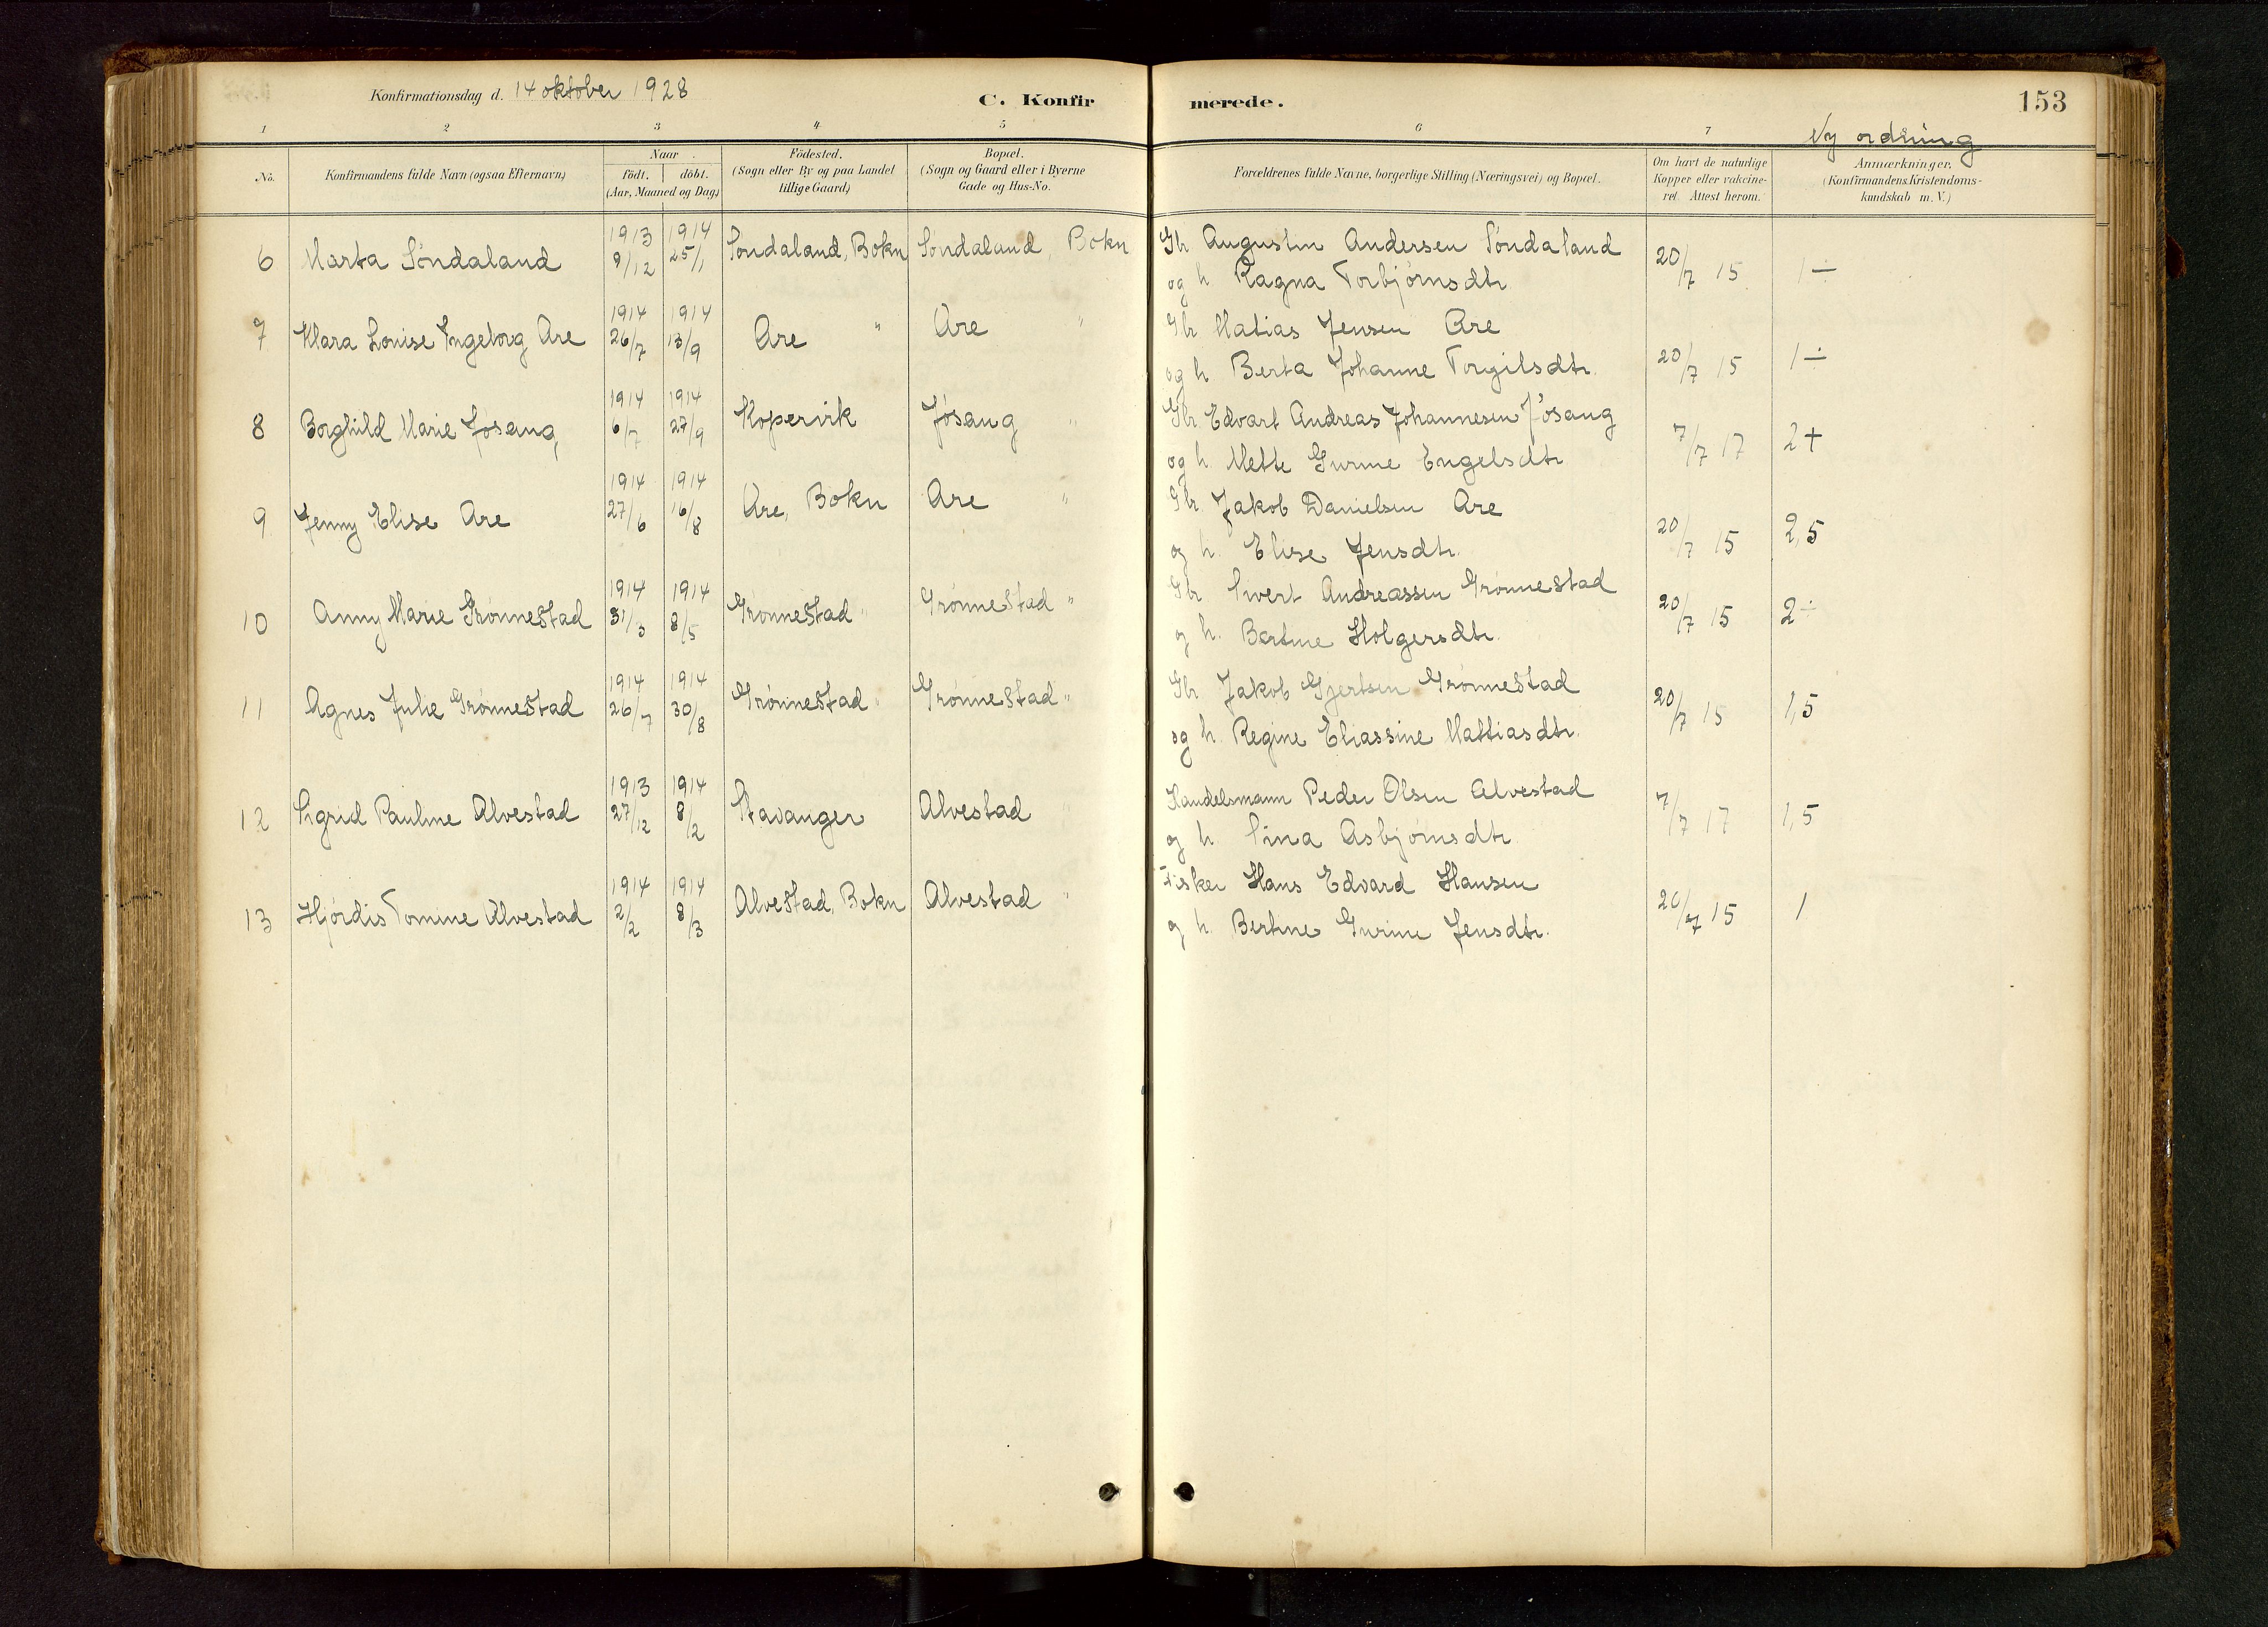 Konfirmationsdag d. 14 oktober 1928
C. Konfirmerede.
153
1 2 3 4 5 6 7
Ny ordning
No.
Konfirmandens fulde Navn (ogsaa Efternavn)
Naar
födt. döbt.
(Aar, Maaned og Dag)
Födested.
(Sogn eller By og paa Landet
tillige Gaard)
Bopæl.
(Sogn og Gaard eller i Byerne
Gade og Hus-No.
Forældrenes fulde Navne, borgerlige Stilling (Næringsvei) og Bopæl.
Om havt de naturlige
Kopper eller vakcine-
ret. Attest herom.
Anmærkninger.
(Konfirmandens Kristendoms-
kundskab m. V.)
6 Marta Söndaland 1913 9/12 1914 25/1 Söndaland, Bokn Söndaland, Bokn
Gbr Augustin Andersen Söndaland
og h. Ragna Torbjörnsdtr. 20/7 15 1÷
7 Klara Louise Ingeborg Are 1914 26/7 1914 13/9 Are " Are "
Gbr Matias Jensen Are
og h Berta Johanne Torgilsdtr. 20/7 15 1÷
8 Borghild Marie Jøsang, 1914 6/7 1914 27/9 Kopervik Jøsang "
Gbr. Edvart Andreas Johannesen Jøsang
og h. Mette Gurine Engelsdtr 7/7 17 2+
9 Jenny Elise Are 1914 27/6 1914 16/8 Are, Bokn Are "
Gbr. Jakob Danielsen Are
og h. Elise Jensdtr. 20/7 15 2,5
10 Anny Marie Grönnestad 1914 31/3 1914 8/5 Grönnestad " Grönnestad "
Gbr Sivert Andreassen Grönnestad
og h. Bertine Holgersdtr. 20/7 15 2÷
11 Agnes Julie Grönnestad 1914 26/7 1914 30/8 Grönnestad " Grönnestad "
Gbr Jakob Gjertsen Grönnestad
og h. Regine Eliassine Mattiasdtr. 20/7 15 1,5
12 Sigrid Pauline Alvestad 1913 27/12 1914 8/2 Stavanger Alvestad "
Handelsmann Peder Olsen Alvestad
og h. Sina Asbjörnsdtr 7/7 17 1,5
13 Hjördis Tomine Alvestad 1914 2/2 1914 8/3 Alvestad, Bokn Alvestad "
Fisker Hans Edvard Hansen
og h. Bertine Gurine Jensdtr. 20/7 15 1